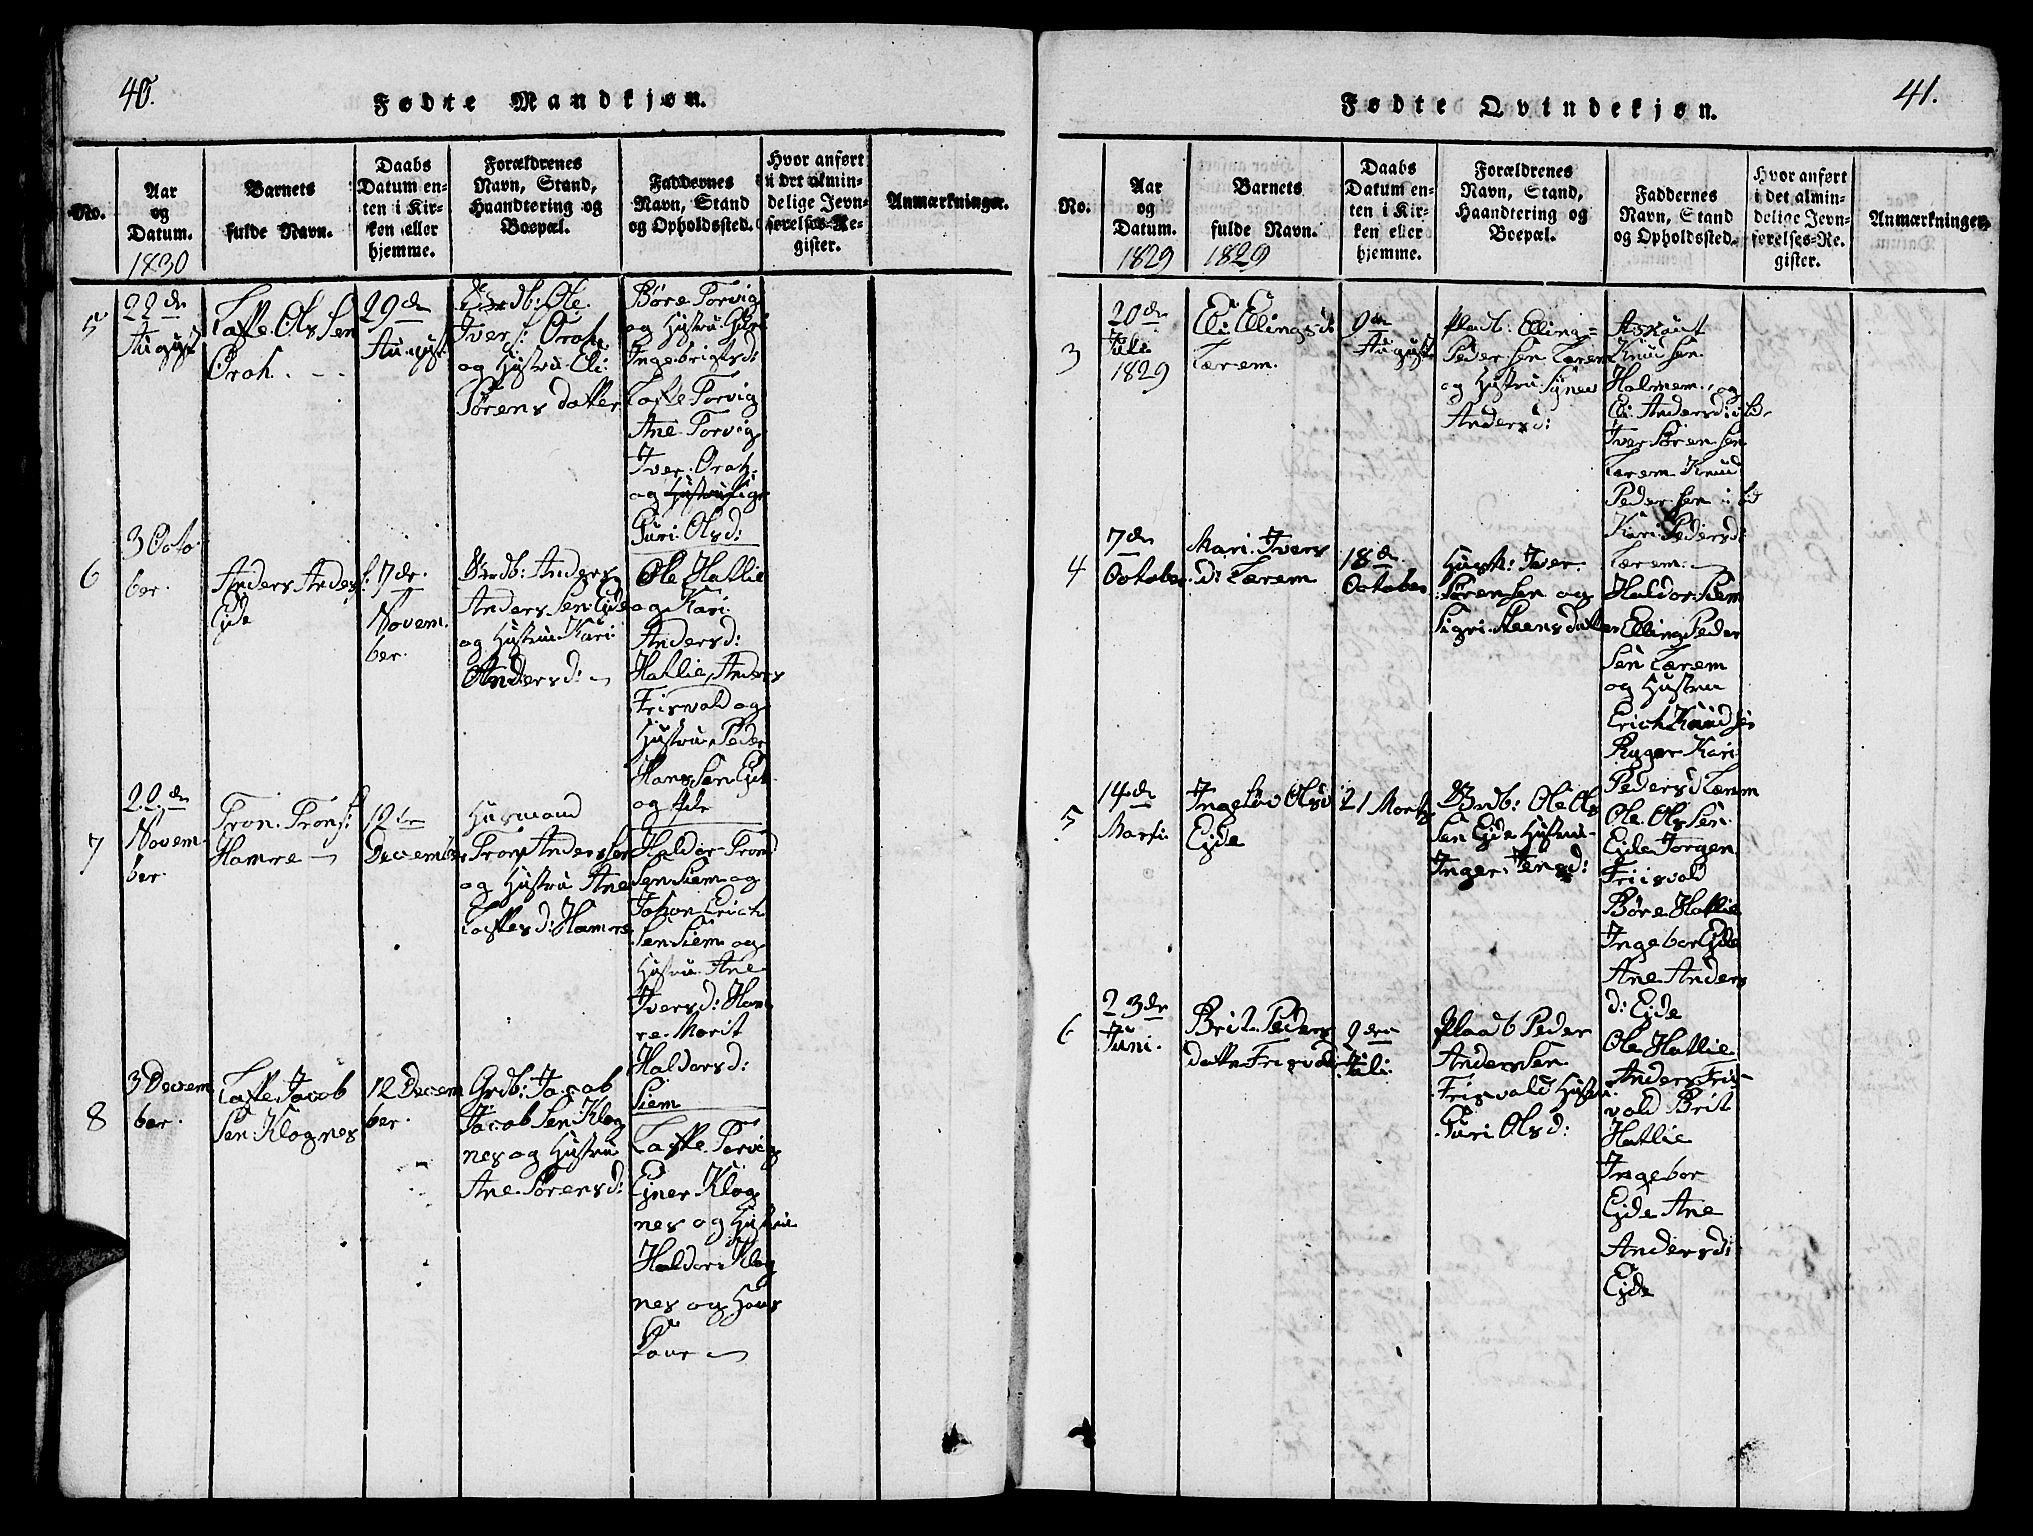 40.
Fødte Mandkjøn.
No.
Aar
og
Datum.
1830
Barnets
fulde Navn.
Daabs
Datum en-
ten i Kir-
ken eller
hjemme.
Forældrenes
Navn, Stand,
Haandtering og
Boepæl.
Faddernes
Navn, Stand
og Opholdssted.
Hvor anført
i det almin-
delige Jevn-
førelses-Re-
gister.
Anmærkninger.
5
22de
August
Ole Olssen
Orah.
29de
August
Ole
Ivers: Orah
og Hustru Eli
Sørens datter
Børe Torvig
og Hustru Guri
Ingebrigtsd:
Torvig
Ane Torvig
Iver Orah:
og
Guri Olsd:
6
3 Octo
ber.
Anders Anders:
Ejde
7de
Novem
ber.
Grdb: Anders
Anders Sen: Ejde
og Hustrue Kari
Andersd:
Ole Hatlie
og Kari
Andersd:
Hatlie, Anders
Frisvold og
Hustru Peder
Hans Sen Ejd
og
7
22de
Novem
ber.
Tron Trons:
Hamre
12te
December
Husmand
Tron Andersen
og Hustru Ane
Hamre
Haldor Trond
Sen Siem og
Johan Erich
Sen Siem og
Hustru Ane
Iversd: Ham
re Marit
Haldorsd:
Siem
8
3 Decem
ber.
Jacob
Sen Klognes
12 Decem
ber.
Grdb: Jacob
Jacob Sen Klog
nes og Hustru
Ane Sørensd:
Torvig
Ejner Klog
nes og Hustrue
Haldor Klog
nes og Hans
41.
Fødte Qvindekjøn.
No.
Aar
og
Datum.
1829
Barnets
fulde Navn.
1829
Daabs
Datum en-
ten i Kir-
ken eller
hjemme.
Forældrenes
Navn, Stand,
Haandtering og
Boepæl.
Faddernes
Navn, Stand
og Opholdssted.
Hvor anført
i det almin-
delige Jevn-
førelses-Re-
gister.
Anmærkninger.
3
20de
Juli
1829
Eli Ellingsd:
Lærem.
9de
August
Plads: Elling
Peder Sen Lærem
og Hustru Signe
Andersd:
Aslaut
Knud Sen
Holmem, og
Eli Andersd: ibd.
Iver Søren Sen
Lærem Knud
Peder Sen ibd
Kari Pedersd:
Lærem.
4
7de
October
Mari Ivers
d: Lærem
18de
October
Husm: Iver
Sørensen og
Sigri Steens datter
Haldor Siem
Elling Peder
Sen Lærem
og Hustru
Erich Knud Sen
Kari
Pedersd Lærem
5
14de
Marti
Olsd
Ejde
21 Marti
Grdb: Ole Ols
Sen Ejde Hustru
Inger Jensd:
Ole Ols Sen
Ejde Jørgen
Friisvold
Børe Hatlie
Ingebor Ejde
Ane Anders
d: Ejde
6
23de
Juni.
Brit Peders
datter Frisvold
2den
Juli
Plads Peder
Andersen
Frisvold Hustru
Guri Olsd:
Ole Hatlie
Anders Fris-
vold Brit
Hatlie
Ingebor
Ejde Ane
Andersd:
Ejde